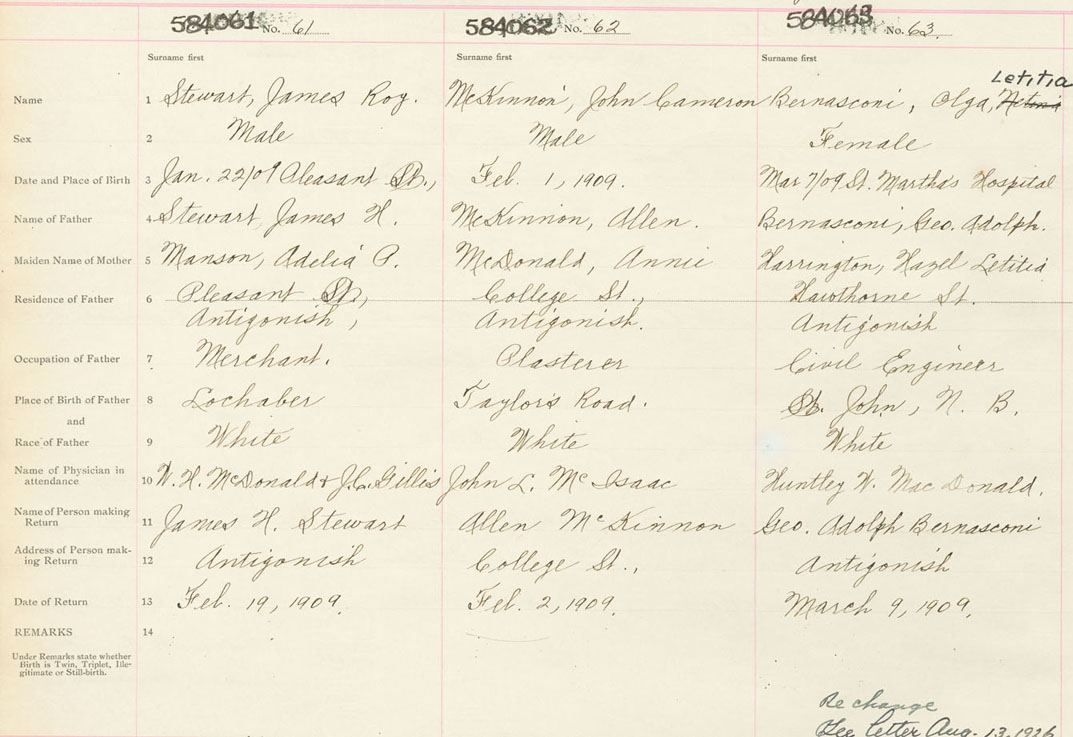 584061 No. 61 584062 No. 62 584063 No. 63
Surname first Surname first Surname first
Letitia
Name 1 Stewart, James Roy. McKinnon, John Cameron Bernasconi, Olga,
Sex 2 Male Male Female
Date and Place of Birth 3 Jan. 22/09 Pleasant St., Feb. 1, 1909. Mar 7/09 St. Martha's Hospital
Name of Father 4 Stewart, James H. McKinnon, Allen. Bernasconi, Geo. Adolph.
Maiden Name of Mother 5 Manson, Adelia P. McDonald, Annie Harrington, Hazel Letitia
Residence of Father 6 Pleasant St., College St., Hawthorne St.
Antigonish, Antigonish. Antigonish
Occupation of Father 7 Merchant. Plasterer Civil Engineer
Place of Birth of Father 8 Lochaber Taylor's Road. St. John, N. B.
and
Race of Father 9 White White White
Name of Physician in
attendance 10 W. H. McDonald & J.C. Gillis John L. McIsaac Huntley W. MacDonald.
Name of Person making
Return 11 James H. Stewart Allen McKinnon Geo. Adolph Bernasconi
Address of Person mak-
ing Return 12 Antigonish College St., Antigonish
Date of Return 13 Feb. 19, 1909. Feb. 2, 1909. March 9, 1909.
REMARKS 14
Under Remarks state whether
Birth is Twin, Triplet, Ille-
gitimate or Still-birth.
Re change
See letter Aug. 13, 1926